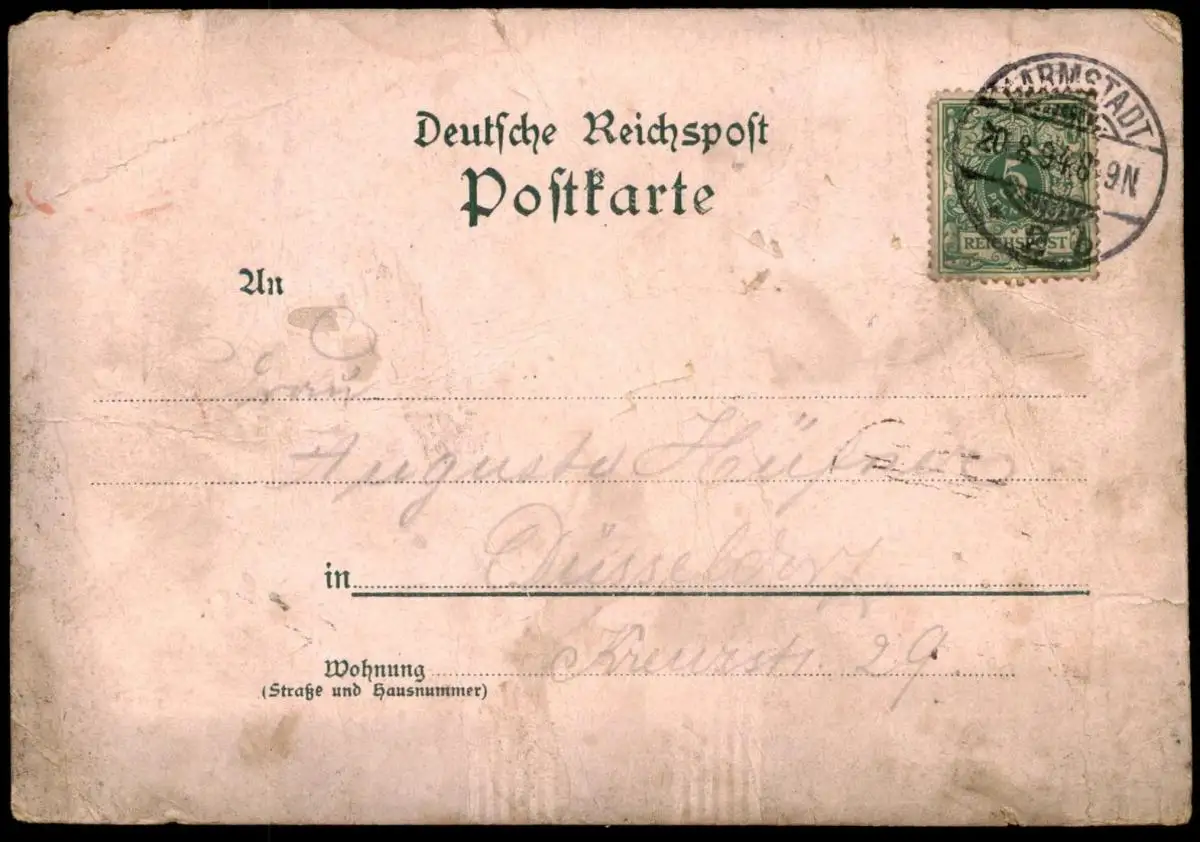 Deutsche Reichspost
Postkarte
DARMSTADT
20 8 94 8-9N
5
REICHSPOST
An
Frau
Auguste
in Düsseldorf
Wohnung Kreuzstr. 29
(Straße und Hausnummer)